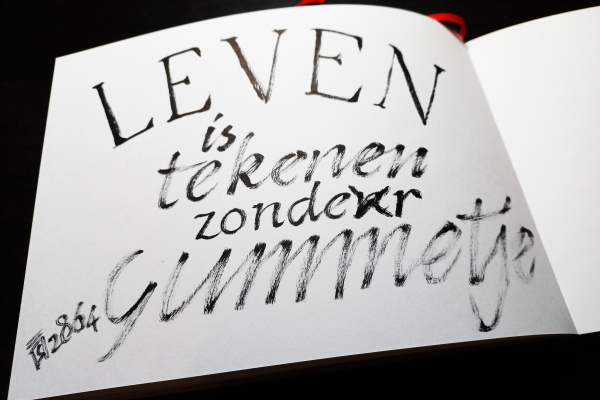 LEVEN
is
tekenen
zonder
Gummetje